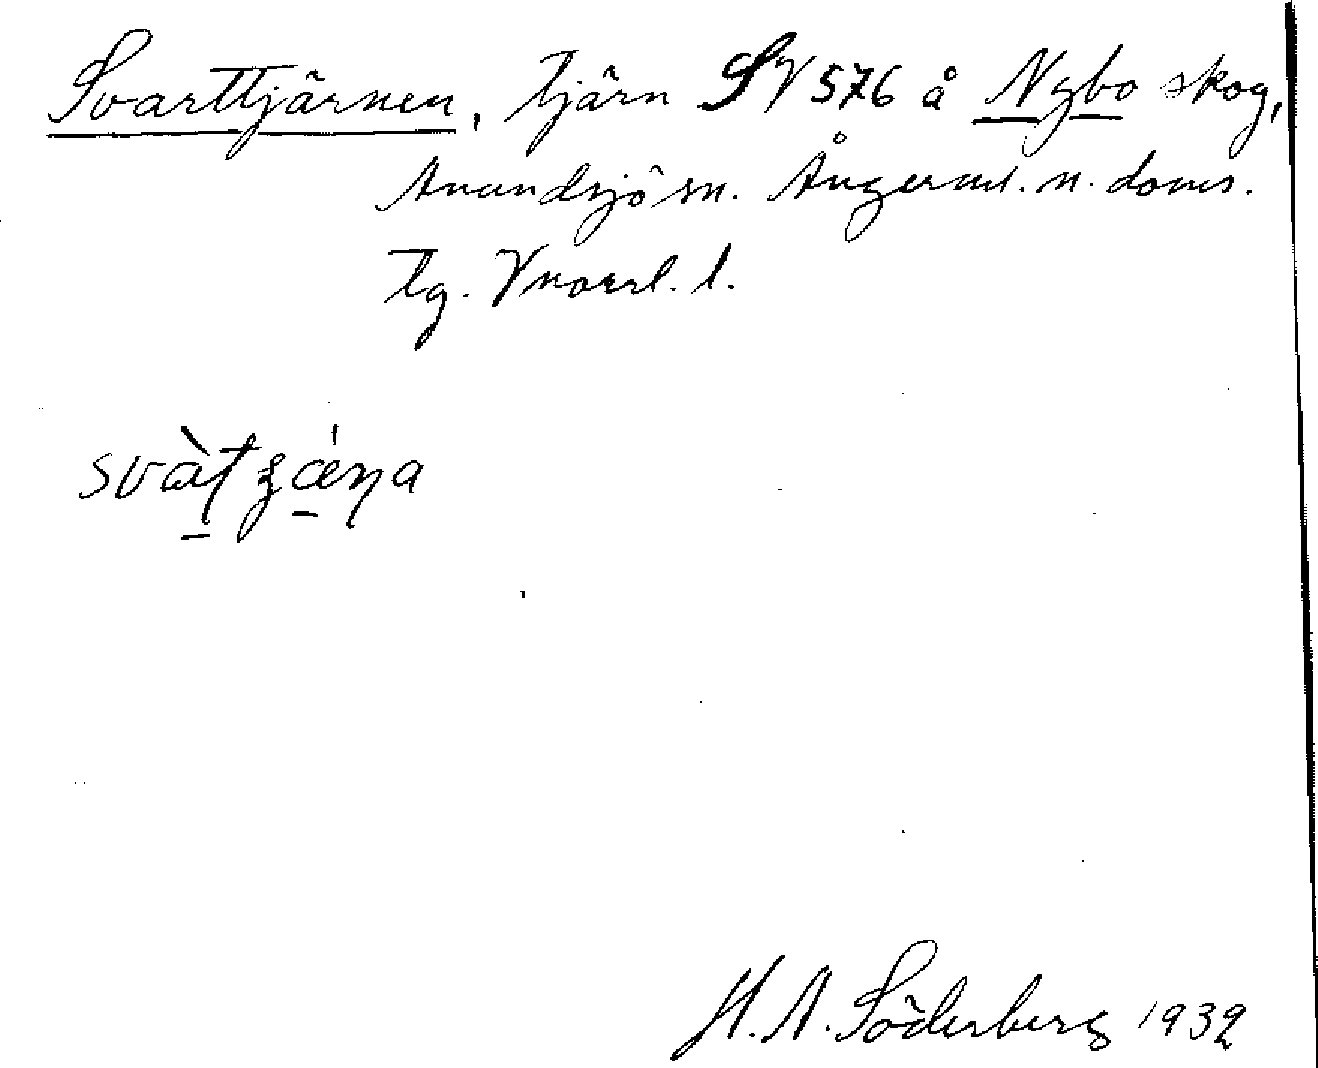 Svarttjärnen, tjärn SV 576 å Nybo skog,
Anundsjö sn. Ångerml. n. doms.
tg. Vnorrl. l.
svàtʂæ̀ṇa
H. A. Söderberg 1932